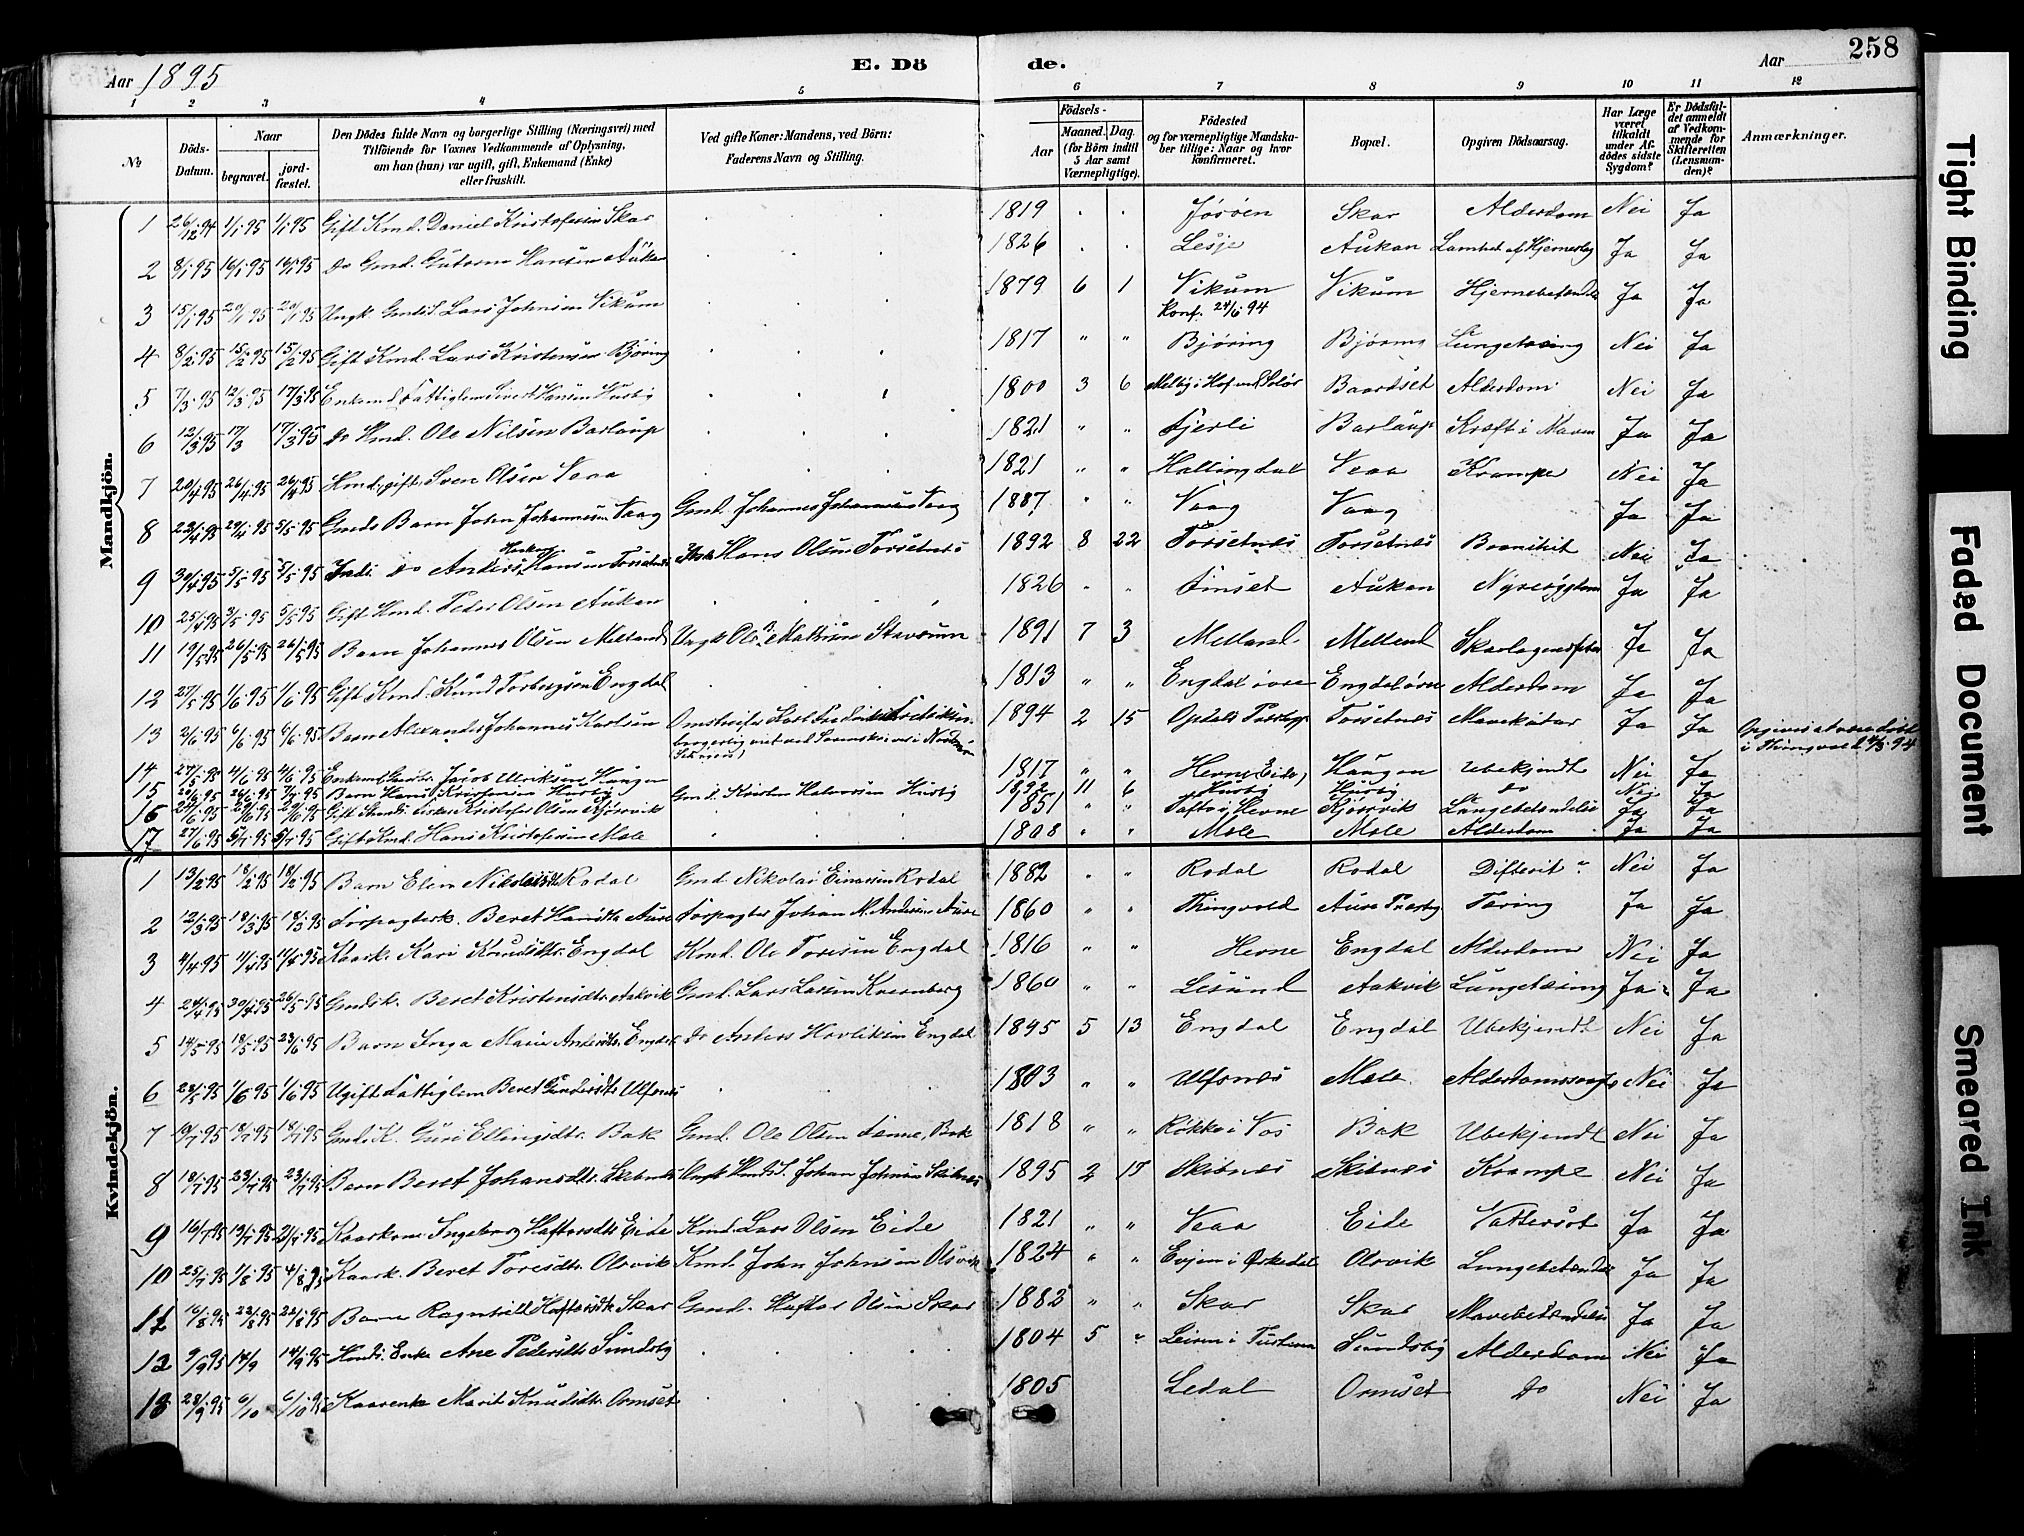 Aar 1895
E. Dö de.
Aar 258
1 2 3 4 5 6 7 8 9 10 11 12
No
Döds-Datum.
Naar
begravet.
jord-fæstet.
Den Dödes fulde Navn og borgerlige Stilling (Næringsvei) med
Tilföiende for Voxnes Vedkommende af Oplysning,
om han (hun) var ugift, gift, Enkemand (Enke)
eller fraskilt.
Ved gifte Koner: Mandens, ved Börn:
Faderens Navn og Stilling.
Födsels-
Aar
Maaned. Dag.
(for Börn indtil
5 Aar samt
Værnepligtige).
Födested
og for værnepligtige Mandska-
ber tillige: Naar og hvor
konfirmeret.
Bopæl.
Opgiven Dödsaarsag.
Har Læge
været
tilkaldt
under Af-
dödes sidste
Sygdom?
Er Dödsfal-
det anmeldt
af Vedkom-
mende for
Skifteretten
(Lensman-
den)?
Anmærkninger.
Mandkjön.
1 26/12 94 1/1 95 1/1 95 Gift Kmd. Daniel Kristofersen Skar 1819 Skar Alderdom Nei Ja
2 8/1 95 16/1 95 16/1 95 Do Gmd. Guttorm Hansen Aukan 1826 Lesje Aukan Lamhet af Hjerneslag Ja Ja
3 15/1 95 20/1 95 20/1 95 Ungk. Gmds. S. Lars Johnsen Vikum 1879 6 1 Vikum Konf. 24/6 94 Vikum Hjernebetændelse Ja Ja
4 8/2 95 15/2 95 15/2 95 Gift Kmd. Lars Kristensen Bjøring 1817 " " Bjøring Bjøring Lungetæring Nei Ja
5 7/3 95 12/3 95 17/3 95 Enkemd. Fattiglem Sivert Hansen Husby 1800 3 6 Melby i Hof Solør Baardset Alderdom Nei Ja
6 12/3 95 17/3 17/3 95 Do Hmd. Ole Nilsen Barlaup 1821 " " Fjerli Barlaup Kræft i Maven Ja Ja
7 20/4 95 26/4 95 26/4 95 Hmd. gift Sven Olsen Vaaa 1821 " " Hallingdal Veaa Krampe Nei Ja
8 23/4 95 29/4 95 5/5 95 Gmds Barn John Johannesen Vaag Gmd. Johannes Johannesen Vaag 1887 " " Vaag Vaag Ja Ja
9 30/4 95 5/5 95 5/5 95 Inds. Do Anders Haakon Hansen Torsetnes Inds Hans Olsen Torsetnes 1892 8 22 Torsetnes Torsetnes Bronikit Nei Ja
10 25/4 95 3/5 95 5/5 95 Gift Hmd. Peder Olsen Aukan 1826 " " Finset Aukan Nyresygdom Ja Ja
11 19/5 95 26/5 95 26/5 95 Barn Johannes Olsen Melland Ungk Ole Mathisen Stavsum 1891 7 3 Melland Melland Skarlagensfeber Ja Ja
12 27/5 95 1/6 95 1/6 95 Gift Kmd. Knud Torbergsen Engdal 1813 " " Engdal øvre Engdal øvre Alderdom Ja Ja
13 2/6 95 6/6 95 6/6 95 Barn Alexander Johannes Karlsen Omstreifer Karl Fredrik Fredriksen 1894 2 15 Opdals Præstegj. Torsetnes Mavekatar Ja Ja Opgives at være døbt i Thingvold
14 27/5 95 4/6 95 4/6 95 Enkemd. Jacob Ulriksen Haugen 1817 " " Hevne (Eide) Haugen Ubekjendt Nei Ja
15 Barn Hans Kristensen Husby Gmd. Kristen Halvorsen Husby 1892 11 6 Husby Husby Do Nei Ja
16 Gift Strands. Fisker Kristofer Olsen Kjørsvik 1851 " " Taftø i Hevne Kjørsvik Lungebetændelse Ja Ja
17 27/6 95 5/7 95 5/7 95 Gift Kmd. Hans Kristofersen Mele 1808 " " Mele Mele Alderdom Ja Ja
Kvindekjön.
1 13/2 95 18/2 95 18/2 95 Barn Elen Nikolaisdt Rodal Gmd. Nikolai Einarsen Rodal 1882 " " Rodal Rodal Difterit Nei Ja
2 12/3 95 18/3 95 18/3 95 Forpagterk. Beret Hansdtr Aure Forpagter Johan M. Andersen Aure 1860 " " Thingvold Aure Præsteg Tæring Ja Ja
3 4/4 95 11/4 95 11/4 95 Kaark. Kari Knudsdtr. Engdal Kmd. Ole Toresen Engdal 1816 " " Hevne Engdal Alderdom Nei Ja
4 24/4 95 30/4 95 26/5 95 Gmdsk. Beret Kristensdtr Aakvik Gmd. Lars Larsen Kvernberg 1860 " " Lesund Aakvik Lungetæring Ja Ja
5 14/5 95 18/5 95 23/6 95 Barn Inga Marie Andersdtr. Engdal Do Anders Havliksen Engdal 1895 5 13 Engdal Engdal Ubekjendt Nei Ja
6 23/5 95 1/6 95 1/6 95 Ugift Fattiglem Beret Gundersdtr Ulfsnes 1803 " " Ulfsnes Mele Alderdomssvagh Nei Ja
7 10/7 95 18/7 95 18/7 95 Gmds. K. Guri Ellingsdtr. Bak Gmd. Ole Olsen Fanne, Bak 1818 " " Røkke i Vos Bak Ubekjendt Nei Ja
8 18/7 95 23/7 95 23/7 95 Barn Beret Johansdtr. Skibnes Ungk Johan Johnsen Skibnes 1895 2 17 Skibnes Skibnes Krampe Nei Ja
9 16/7 95 21/7 95 Kaarkone Ingeborg Haftorsdtr Eide Kmd. Lars Olsen Eide 1821 " " Veaa Eide Vattersot Ja Ja
10 25/7 95 1/8 95 4/8 95 Kaark. Beret Toresdtr. Olsvik Kmd. John Johnsen Olsvik 1824 " " Evjen i Ørkedal Olsvik Lungebetændelse Ja Ja
11 16/8 95 22/8 95 22/8 95 Barn Ragnhild Haftorsdtr Skar Gmd. Haftor Olsen Skar 1883 " " Skar Skar Mavebetændelse Ja Ja
12 9/9 95 14/9 14/9 95 Hmds. Enke Ane Pedersdtr Sundsby 1804 5 " Leiren i Tustern Sundsby Alderdom Nei Ja
13 28/9 95 6/10 6/10 95 Kaarenke Marit Knudsdtr. Ormset 1805 Ledal Ormset Do Nei Ja
Tight Binding
Faded Document
Smeared Ink